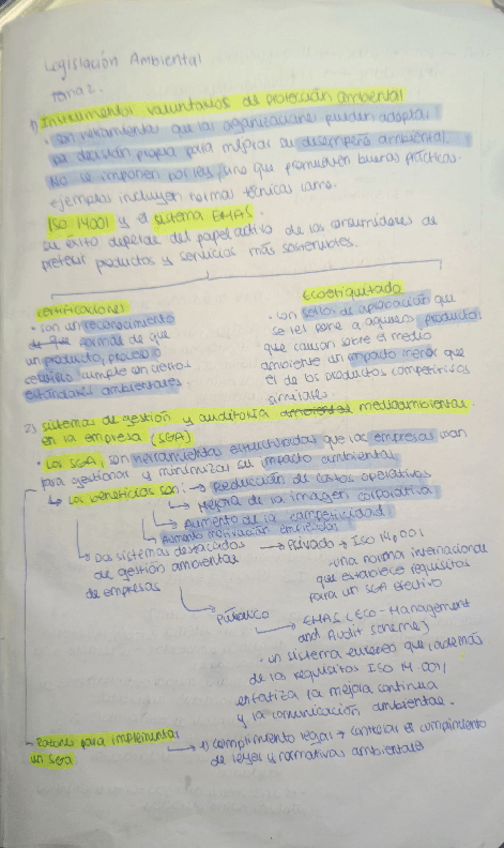 Legislación Ambiental
Tema 2.
1) Instrumentos voluntarios de protección ambiental
• son herramientas que las organizaciones pueden adoptar
por decisión propia para mejorar su desempeño ambiental.
No se imponen por ley, sino que promueven buenas prácticas.
ejemplos incluyen normas técnicas como.
ISO 14001 y el sistema EMAS.
su éxito depende del papel activo de los consumidores de
preferir productos y servicios más sostenibles.
certificaciones
• son un reconocimiento
de que formal de que
un producto, proceso o
servicio cumple con ciertos
estándares ambientales.
Ecoetiquetado
• son sellos de aprobación que
se les pone a aquellos productos
que causan sobre el medio
ambiente un impacto menor que
él de los productos competitivos
similares.
2) sistemas de gestión y auditoría ambiental medioambiental
en la empresa (SGA)
• Los SGA, son herramientas estructuradas que las empresas usan
para gestionar y minimizar su impacto ambiental
↳ Los beneficios son: → Reducción de costos operativos
↳ Mejora de la imagen corporativa
↳ Aumento de la competitividad
↳ Aumento motivación empleados
↳ Dos sistemas destacados
de gestión ambientales
de empresas
→ Privado → ISO 14.001
• una norma internacional
que establece requisitos
para un SGA efectivo
↳ Público
↳ EMAS (Eco-Management
and Audit Scheme)
• un sistema europeo que (además
de los requisitos ISO 14.001)
enfatiza la mejora continua
y la comunicación ambiental.
→ Razones para implementar
un SGA
→ 1) Cumplimiento legal → controlar el cumplimiento
de leyes y normativas ambientales